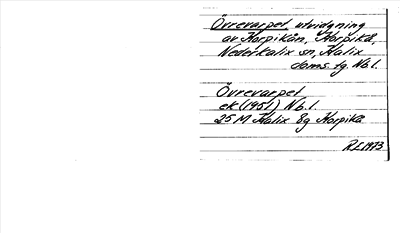 Övrevarpet, utvidgning
av Korpikån, Korpikå,
Nederkalix sn, Kalix
doms. tg. Nb.l.
Övrevarpet
ek (1951) Nb.l.
25M Kalix 8g Korpikå
RL1973